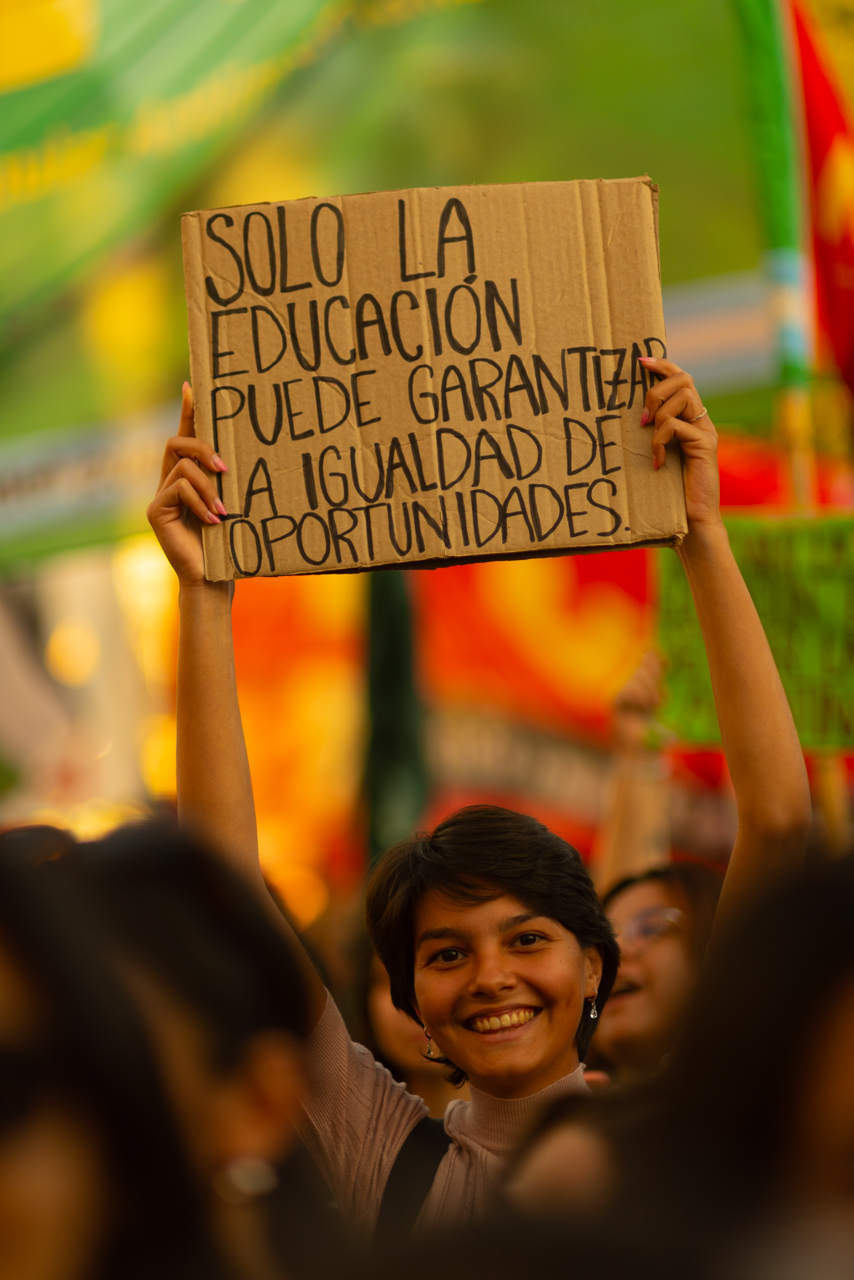 SOLO LA
EDUCACIÓN
PUEDE GARANTIZAR
LA IGUALDAD DE
OPORTUNIDADES.